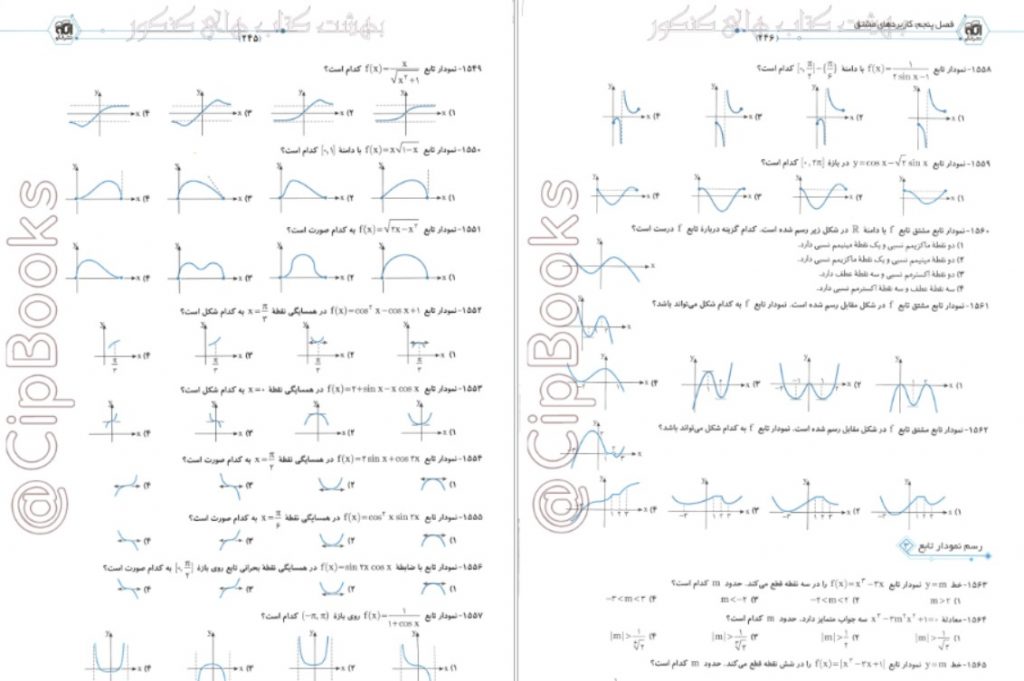 بهشت کتاب های کنکور
(۲۴۵)
۱۵۴۹- نمودار تابع f(x)=x/√(x²+1) کدام است؟
۱) ۲) ۳) ۴)
۱۵۵۰- نمودار تابع f(x)=x√(1-x) با دامنهٔ [۰,۱] کدام است؟
۱) ۲) ۳) ۴)
۱۵۵۱- نمودار تابع f(x)=√(۲x-x²) به کدام صورت است؟
۱) ۲) ۳) ۴)
۱۵۵۲- نمودار تابع f(x)=cos²x-cosx+1 در همسایگی نقطهٔ x=π/۳ به کدام شکل است؟
۱) ۲) ۳) ۴)
۱۵۵۳- نمودار تابع f(x)=۲+sin x-x cos x در همسایگی نقطهٔ x=۰ به کدام شکل است؟
۱) ۲) ۳) ۴)
۱۵۵۴- نمودار تابع f(x)=۲sin x+cos ۲x در همسایگی نقطهٔ x=π/۲ به کدام صورت است؟
۱) ۲) ۳) ۴)
۱۵۵۵- نمودار تابع f(x)=cos²x sin ۲x در همسایگی نقطهٔ x=π/۶ به کدام صورت است؟
۱) ۲) ۳) ۴)
۱۵۵۶- نمودار تابع با ضابطهٔ f(x)=sin ۲x cos x در همسایگی نقطهٔ بحرانی تابع روی بازهٔ [۰,π/۲] به کدام صورت است؟
۱) ۲) ۳) ۴)
۱۵۵۷- نمودار تابع f(x)=1/(1+cos x) روی بازهٔ (-π,π) کدام است؟
۱) ۲) ۳) ۴)
@CipBooks
فصل پنجم: کاربردهای مشتق
بهشت کتاب های کنکور
(۲۴۶)
۱۵۵۸- نمودار تابع f(x)=1/(۲sin x-1) با دامنهٔ [۰,π/۲]-{π/۶} کدام است؟
۱) ۲) ۳) ۴)
۱۵۵۹- نمودار تابع y=cos x-√۳ sin x در بازهٔ [۰,۲π] کدام است؟
۱) ۲) ۳) ۴)
۱۵۶۰- نمودار تابع مشتق تابع f با دامنهٔ R در شکل زیر رسم شده است. کدام گزینه دربارهٔ تابع f درست است؟
۱) دو نقطهٔ ماکزیمم نسبی و یک نقطهٔ مینیمم نسبی دارد.
۲) دو نقطهٔ مینیمم نسبی و یک نقطهٔ ماکزیمم نسبی دارد.
۳) دو نقطهٔ اکسترمم نسبی و سه نقطهٔ عطف دارد.
۴) سه نقطهٔ عطف و سه نقطهٔ اکسترمم نسبی دارد.
۱۵۶۱- نمودار تابع مشتق تابع f در شکل مقابل رسم شده است. نمودار تابع f به کدام شکل می‌تواند باشد؟
۱) ۲) ۳) ۴)
۱۵۶۲- نمودار تابع مشتق تابع f در شکل مقابل رسم شده است. نمودار تابع f به کدام شکل می‌تواند باشد؟
۱) ۲) ۳) ۴)
رسم نمودار تابع ۳
۱۵۶۳- خط y=m نمودار تابع f(x)=x³-۳x را در سه نقطه قطع می‌کند. حدود m کدام است؟
۱) m>۲ ۲) -۲<m<۲ ۳) m<-۲ ۴) -۳<m<۳
۱۵۶۴- معادلهٔ x³-۳m²x²+1=۰ سه جواب متمایز دارد. حدود m کدام است؟
۱۵۶۵- خط y=m نمودار تابع f(x)=|x³-۳x+1| را در شش نقطه قطع می‌کند. حدود m کدام است؟
@CipBooks